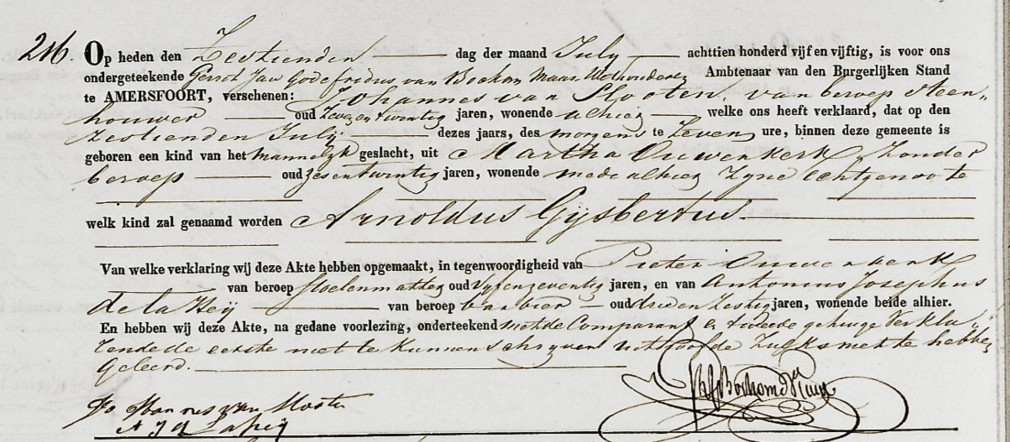 216. Op heden den Zestienden dag der maand July achttien honderd vijf en vijftig, is voor ons
ondergeteekende Gerrit Jan Godefridus van Ambtenaar van den Burgerlijken Stand
te AMERSFOORT, verschenen: Johannes van Slooten, van beroep Steen-
houwer oud Zevenentwintig jaren, wonende alhier welke ons heeft verklaard, dat op den
Zestienden July dezes jaars, des morgens te Zeven ure, binnen deze gemeente is
geboren een kind van het Mannelijk geslacht, uit Martha Ouwerkerk, Zonder
beroep oud Zesentwintig jaren, wonende mede alhier Zyne Echtgenoote
welk kind zal genaamd worden Arnoldus Gijsbertus.
Van welke verklaring wij deze Akte hebben opgemaakt, in tegenwoordigheid van Pieter Ouwerkerk
van beroep Stoelenmatter oud Vyfenzeventig jaren, en van Antonius Josephus
de la Heij van beroep barbier oud drieenzestig jaren, wonende beide alhier.
En hebben wij deze Akte, na gedane voorlezing, onderteekend met de Comparant en tweede getuige Verkla-
rende de eerste niet te Kunnen schryven uithoofde Zulks niet te hebben
geleerd.
Johannes van Slooten